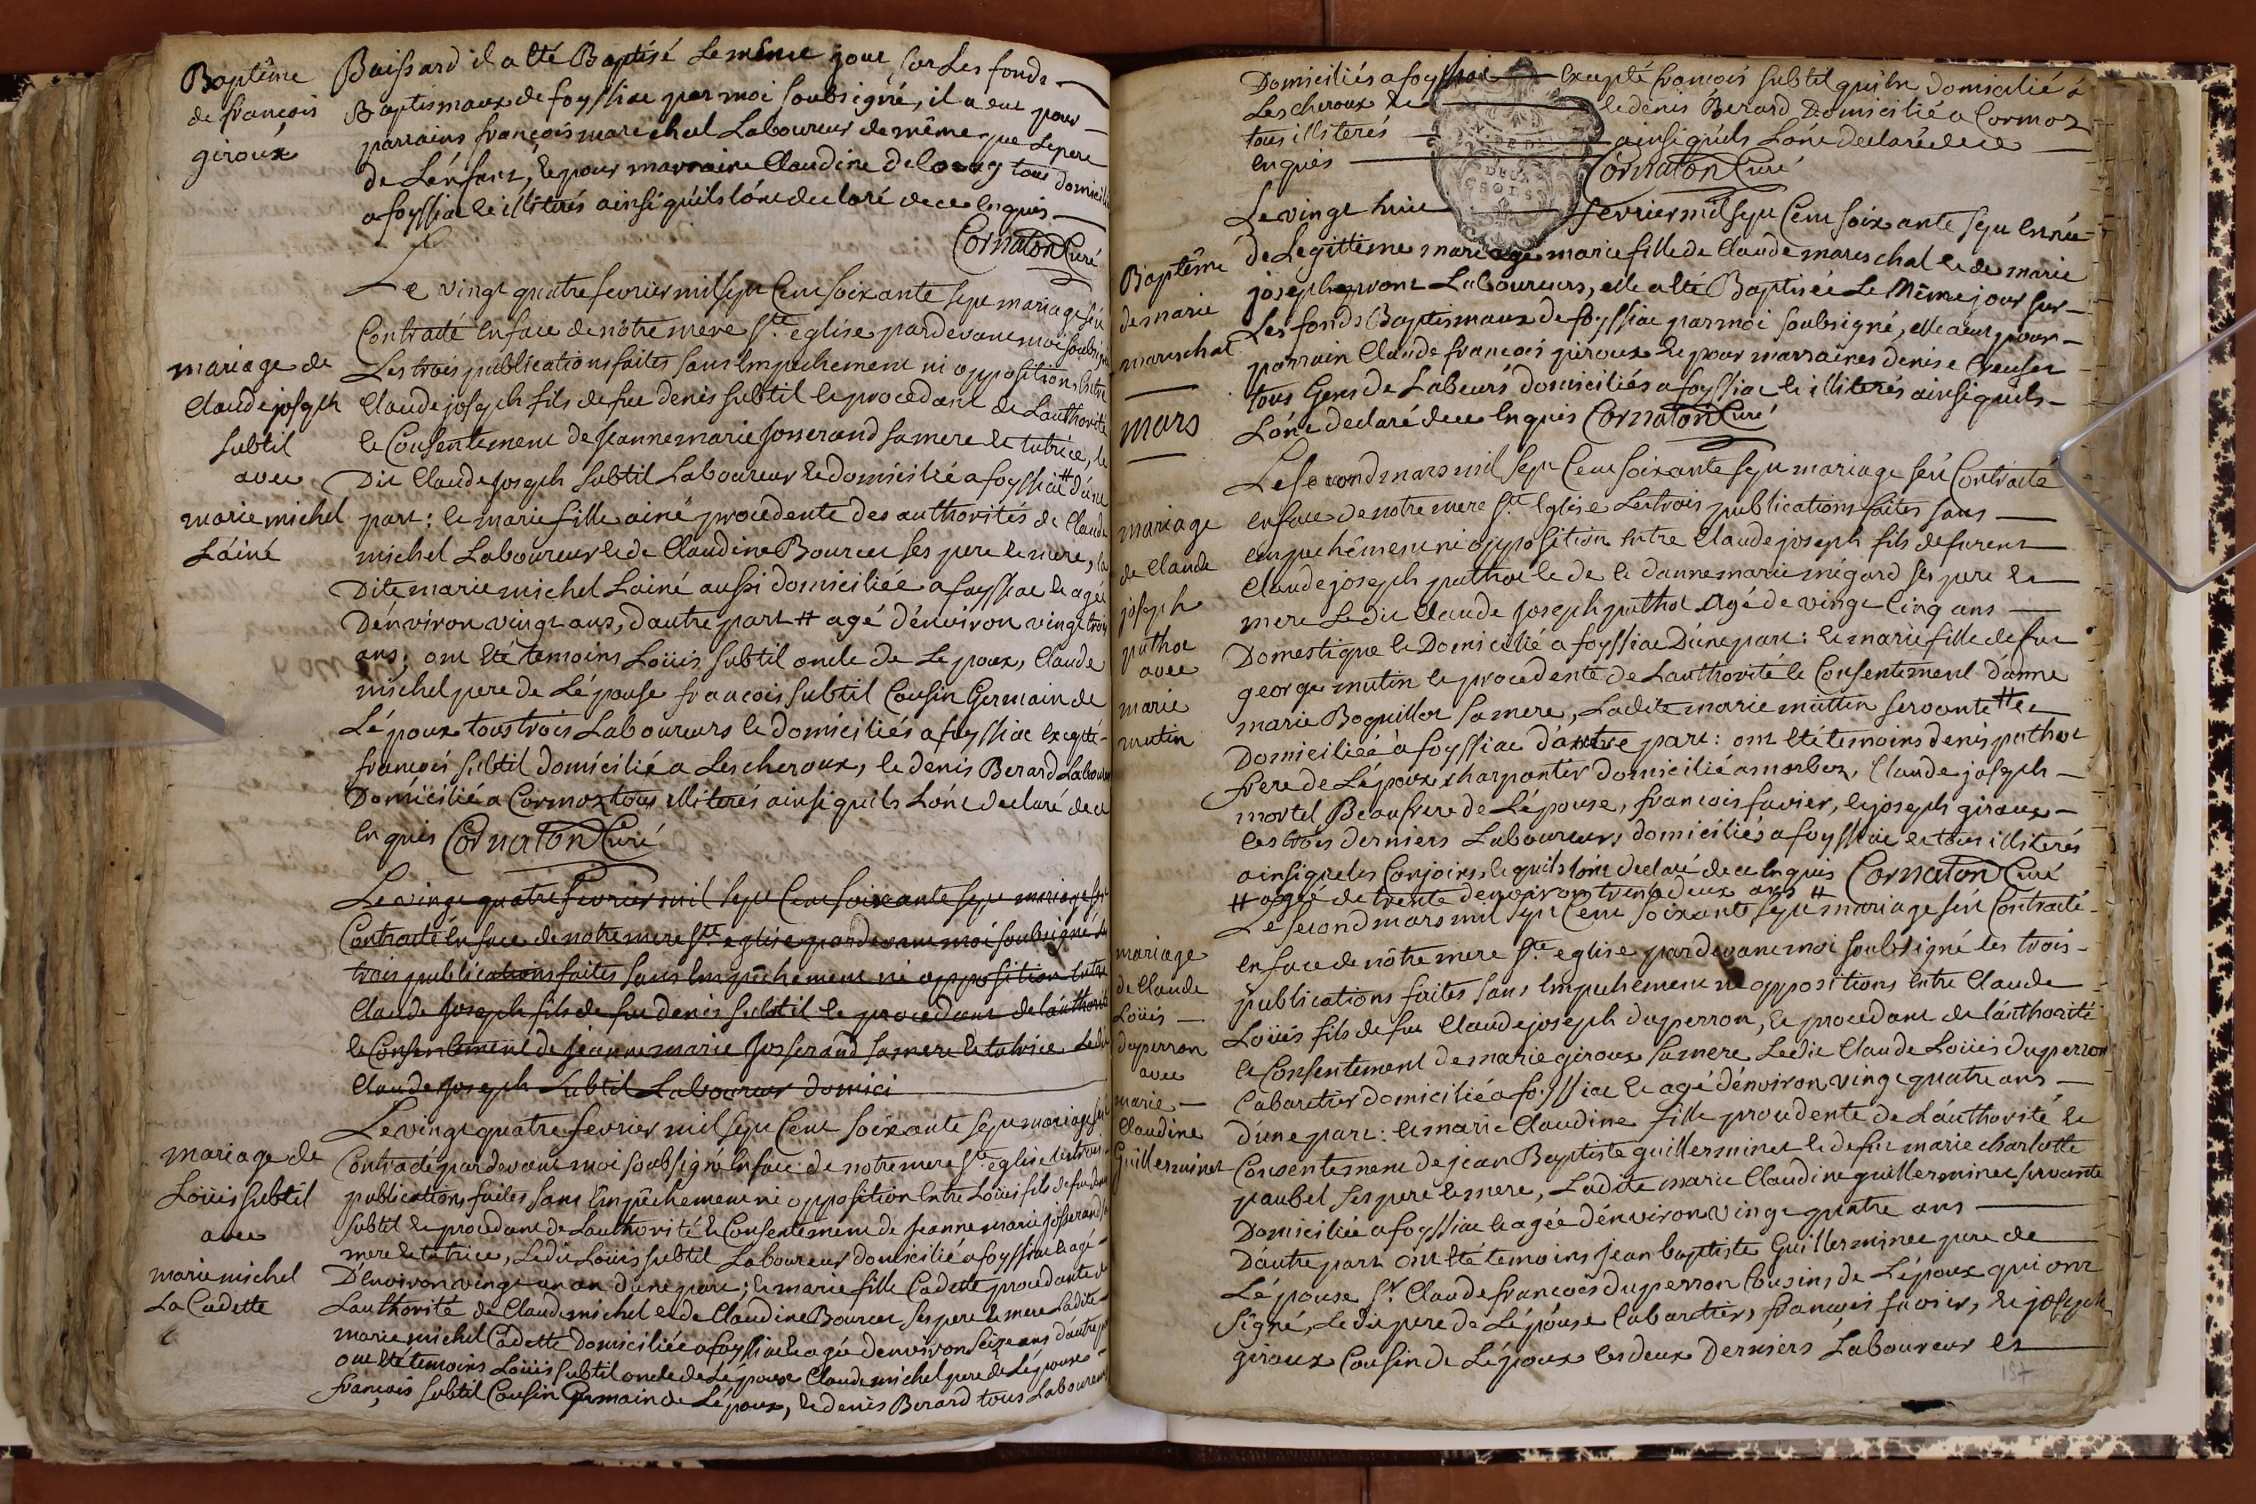 Baptême
de françois
giroux
Buissard il a été Baptisé Le même jour sur Les fonds
Baptismaux de foyssiac par moi soubsigné, il a eut pour
parrains françois mareschal Laboureur de même que Le pere
de L'énfant, et pour marraine Claudine tous domicilié
a foyssiac et illiterés ainsi qu'ils l'ónt declaré de ce Enquis
Cornaton Curé
mariage de
Claude joseph
subtil
avec
marie michel
L'áiné
Le vingt quatre fevrier mil sept Cent soixante sept mariage fût
Contracté En face de nôtre mere Ste église pardevant moi soubsigné
Les trois publications faites sans Empechement ni opposition, Entre
Claude joseph fils de feu denis subtil et procedant de L'authorité
et Consentement de Jeanne marie Josserand sa mere et tutrice, le
Dit Claude Joseph subtil Laboureur et domicilié a foyssiac # d'úne
part: et marie fille ainé procedente des authorités de Claude
michel Laboureur et de Claudine Bourcet ses pere et mere, la
Dite marie michel L'ainé aussi domiciliée a foyssiac et agée
D'énviron vingt ans, d'autre part # agé d'énviron vingt trois
ans; ont été temoins Loüis subtil oncle de L'epoux, Claude
michel pere de L'épouse françois subtil Cousin Germain de
L'époux tous trois Laboureurs et domiciliés a foyssiac excepté
françois subtil domicilié a Lescheroux, et denis Berard Laboureur
Domicilié a Cormoz tous illiterés ainsi qu'ils L'ónt declaré de ce
Enquis Cornaton Curé
Le vingt quatre fevrier mil sept Cent soixante sept mariage fût
Contracté En face de notre mere Ste eglise par devant moi soubsigné Les
trois publications faites sans Empêchement ni opposition Entre
Claude Joseph fils de feu denis subtil et procedant de l'áuthorité
et Consentement de Jeanne marie Josserand sa mere et tutrice Ledit
Claude Joseph subtil Laboureur domici
mariage de
Loüis subtil
avec
marie michel
La Cadette
Le vingt quatre fevrier mil sept Cent soixante sept mariage fut
Contracté pardevant moi soubsigné En face de notre mere Ste eglise Les trois
publications faites sans Empêchement ni opposition Entre Loüis fils de feu denis
subtil et procedant de L'authorité et Consentement de Jeanne marie josserand sa
mere et tutrice, Ledit Loüis subtil Laboureur domicilié a foyssiac et agé
D'énviron vingt un an d'une part; et marie fille Cadette procedante de
L'authorité de Claude michel et de Claudine Bourcet ses pere et mere Ladite
marie michel Cadette domiciliée a foyssiac et agée d'environ seize ans d'autre part
ont été temoins Loüis subtil oncle de L'époux Claude michel pere de L'épouse
françois subtil Cousin Germain de L'époux, et denis Berard tous Laboureurs
Domiciliés a foyssiac excepté francois subtil qui est domicilié à
Lescheroux et le denis Berard Domicilié a Cormoz
tous illiterés ainsi qu'ils L'ónt declaré de ce
Enquis Cornaton Curé
Baptême
de marie
mareschal
Le vingt huit fevrier mil sept Cent soixante sept Est née
de Legittime mariage marie fille de Claude mareschal et de marie
joseph Laboureurs, elle a été Baptisée Le Même jour sur
Les fonds Baptismaux de foyssiac par moi soubsigné, elle a eut pour
parrain Claude françois giroux et pour marraines denise Creuset
tous Gens de Labeurs domiciliés a foyssiac et illiterés ainsi quils
L'ónt declaré de ce Enquis Cornaton Curé
mars
mariage
de Claude
joseph
puthot
avec
marie
mutin
Le second mars mil sept Cent soixante sept mariage fût Contracté
En face de notre mere Ste Eglise Les trois publications faites sans
Empechêment ni opposition Entre Claude joseph fils defurent
Claude joseph puthot et de et danne marie mégard ses pere et
mere Le dit Claude Joseph puthot Agé de vingt Cinq ans
Domestique et Domicilié a foyssiac D'úne part: et marie fille de feu
george mutin et procedente de L'authorité et Consentement d'ánne
marie Boquillot sa mere, Ladite marie muttin servante # et
Domiciliée a foyssiac d'autre part: ont été temoins denis puthot
frere de L'époux charpantier domicilié a marboz, Claude joseph
mortel Beaufrere de L'épouse, françois favier, et joseph giroux
Les trois derniers Laboureurs domiciliés a foyssiac et tous illiterés
ainsi que les Conjoins, et quils l'ónt declaré de ce Enquis Cornaton Curé
# agée de trente denviron trente deux ans #
mariage
de Claude
Loüis
duperron
avec
marie
Claudine
Guillerminet
Le second mars mil sept Cent soixante sept mariage fût Contracté
En face de nôtre mere Ste eglise pardevant moi soubsigné les trois
publications faites sans Empechement ni oppositions Entre Claude
Loüis fils de feu Claude joseph duperron, et procedant de l'áuthorité
et Consentement de marie giroux sa mere Ledit Claude Loüis duperron
Cabaretier domicilié a foyssiac et agé d'énviron vingt quatre ans
d'une part: et marie Claudine fille procedente de L'áuthorité et
Consentement de jean Baptiste guillerminet et de feu marie charlotte
paubel ses pere et mere, Ladite marie Claudine guillerminet servante
Domiciliée a foyssiac et agée d'énviron vingt quatre ans
D'áutre part ont été temoins Jean baptiste Guillerminet pere de
L'épouse Sr Claude françois duperron Cousins de L'époux qui ont
Signé, Le dit pere de L'épóuse Cabaretier, françois favier, et joseph
giroux Cousin de L'époux les deux Derniers Laboureur et
157